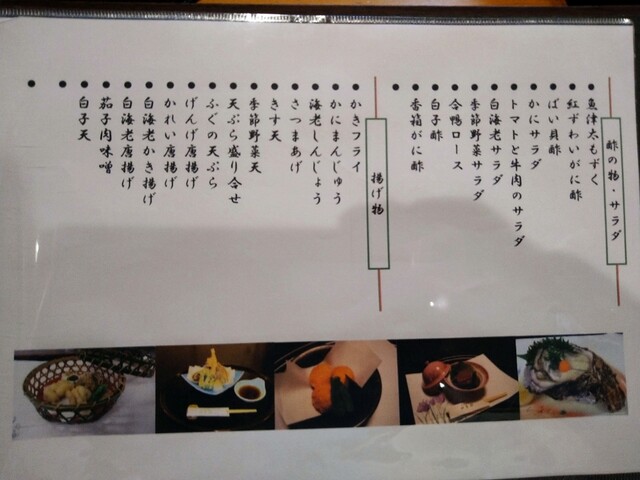 酢の物・サラダ
● 魚津太もずく
● 紅ずわいがに酢
● ばい貝酢
● かにサラダ
● トマトと牛肉のサラダ
● 白海老サラダ
● 季節野菜サラダ
● 合鴨ロース
● 白子酢
● 香箱がに酢
●
揚げ物
● かきフライ
● かにまんじゅう
● 海老しんじょう
● さつまあげ
● きす天
● 季節野菜天
● 天ぷら盛り合せ
● ふぐの天ぷら
● げんげ唐揚げ
● かれい唐揚げ
● 白海老かき揚げ
● 白海老唐揚げ
● 茄子肉味噌
● 白子天
●
●